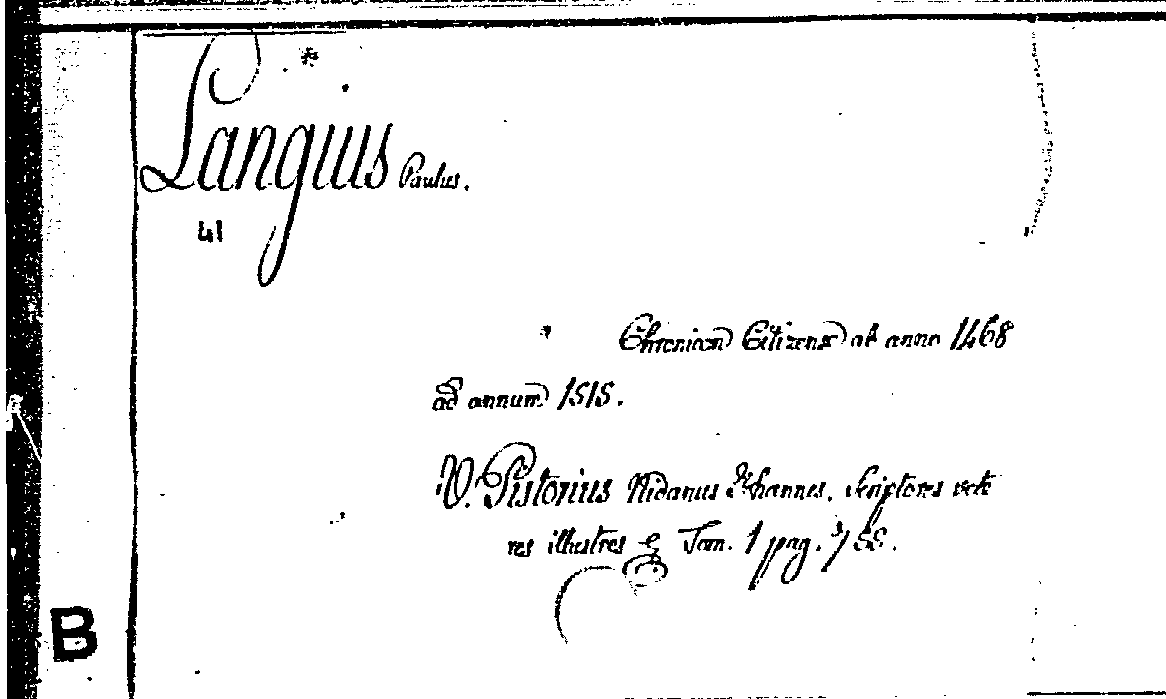 *
Langius Paulus.
41
Chronicon Citizense ab anno 1468
ad annum 1515.
V. Pistorius Nidanus Johannes. Scriptores vete
res illustres & Tom. 1 pag.
B